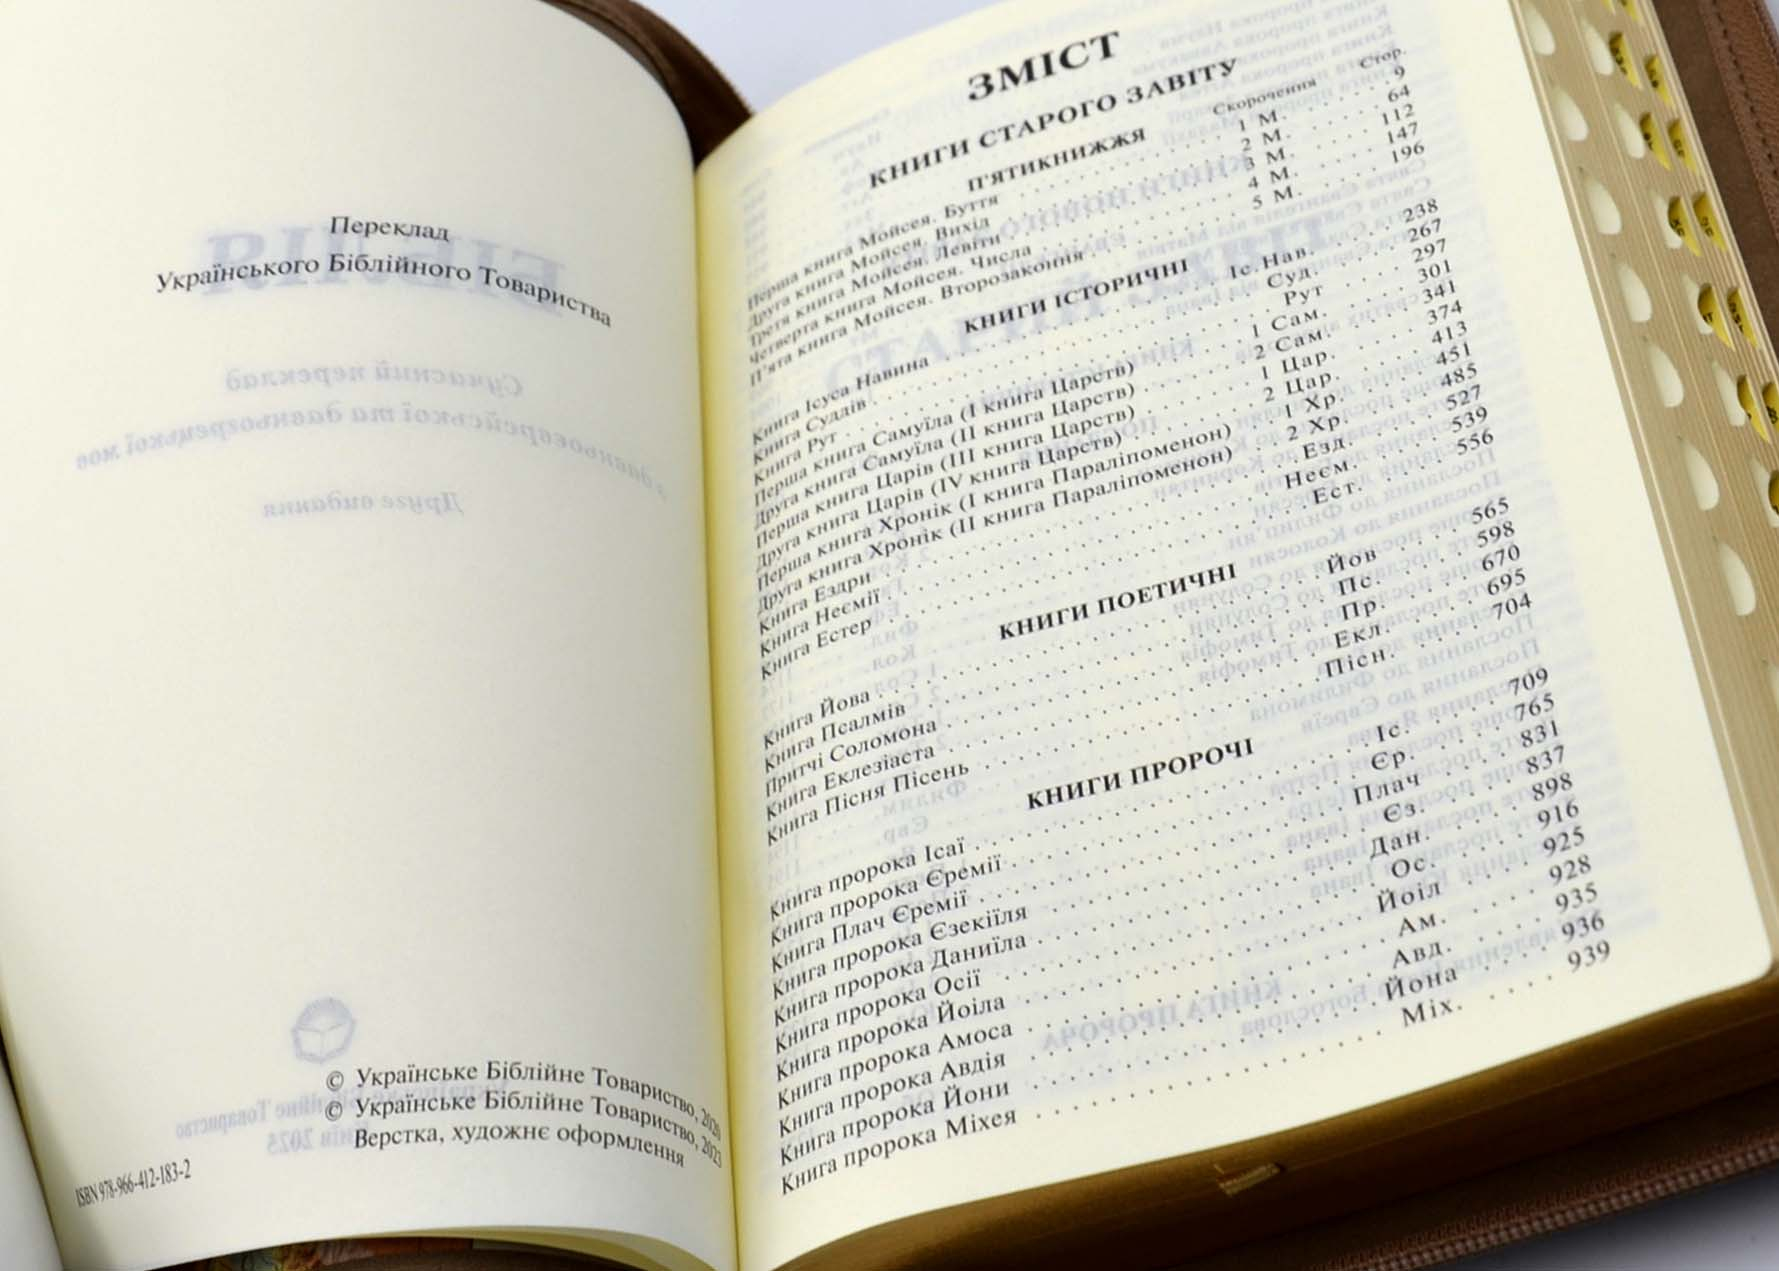 Переклад
Українського Біблійного Товариства
© Українське Біблійне Товариство, 2020
© Українське Біблійне Товариство, 2023
Верстка, художнє оформлення
ISBN 978-966-412-183-2
ЗМІСТ
КНИГИ СТАРОГО ЗАВІТУ
Скорочення Стор.
П'ЯТИКНИЖЖЯ
Перша книга Мойсея. Буття 1 М. 9
Друга книга Мойсея. Вихід 2 М. 64
Третя книга Мойсея. Левіти 3 М. 112
Четверта книга Мойсея. Числа 4 М. 147
П'ята книга Мойсея. Второзаконня 5 М. 196
КНИГИ ІСТОРИЧНІ
Книга Ісуса Навина Іс. Нав. 238
Книга Суддів Суд. 267
Книга Рут Рут 297
Перша книга Самуїла (I книга Царств) 1 Сам. 301
Друга книга Самуїла (II книга Царств) 2 Сам. 341
Перша книга Царів (III книга Царств) 1 Цар. 374
Друга книга Царів (IV книга Царств) 2 Цар. 413
Перша книга Хронік (I книга Параліпоменон) 1 Хр. 451
Друга книга Хронік (II книга Параліпоменон) 2 Хр. 485
Книга Ездри Езд. 527
Книга Неємії Неєм. 539
Книга Естер Ест. 556
КНИГИ ПОЕТИЧНІ
Книга Йова Йов 565
Книга Псалмів Пс. 598
Притчі Соломона Пр. 670
Книга Еклезіаста Екл. 695
Книга Пісня Пісень Пісн. 704
КНИГИ ПРОРОЧІ
Книга пророка Ісаї Іс. 709
Книга пророка Єремії Єр. 765
Книга Плач Єремії Плач 831
Книга пророка Єзекіїля Єз. 837
Книга пророка Даниїла Дан. 898
Книга пророка Осії Ос. 916
Книга пророка Йоіла Йоіл 925
Книга пророка Амоса Ам. 928
Книга пророка Авдія Авд. 935
Книга пророка Йони Йона 936
Книга пророка Міхея Міх. 939